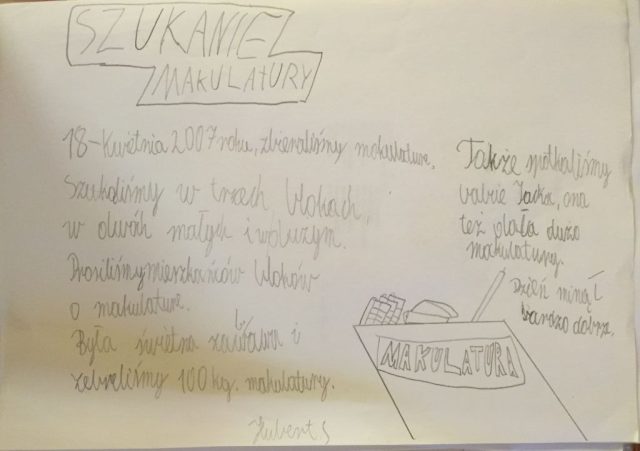 SZUKANIE
MAKULATURY
18-Kwietnia 2007 roku, zbieraliśmy makulature,
Szukaliśmy w trzech blokach,
w dwóh małych i w dużym.
Prosiliśmy mieszkańców bloków
o makulature.
Była świetna zabawa i
zebraliśmy 100 kg. makulatury.
Hubert S
Także spotkaliśmy
babcie Jacka, ona
też dała dużo
makulatury.
Dzień minął
bardzo dobrze.
MAKULATURA